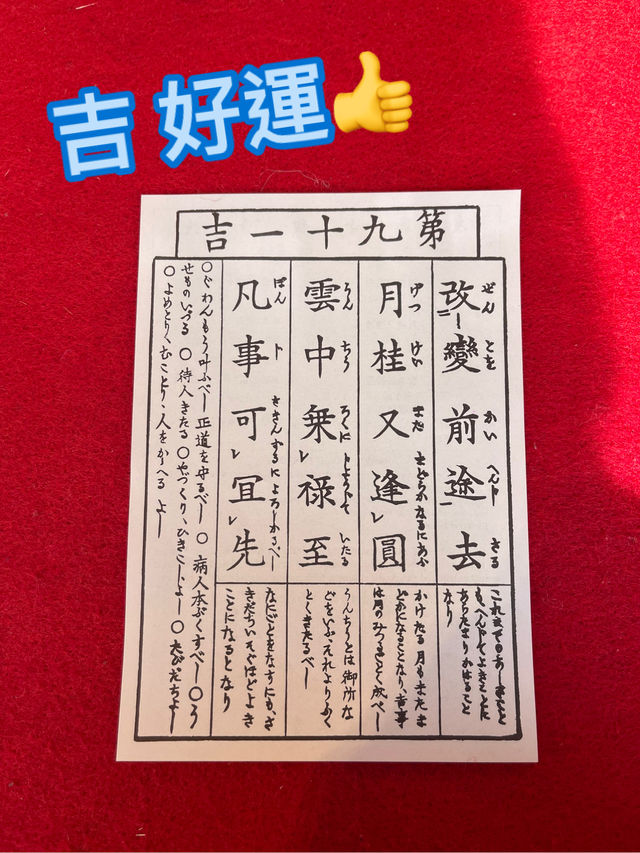 吉 好運👍
第九十一吉
改變前途去
ぜんとを かいへんし さる
これまでのあしきことも、へんじてよきことにあらたまりかはることなり
月桂又逢圓
げつけい また まどかなるにあふ
かけたる月もまたまどかになることなり、吉事は月のみつるごとく成べし
雲中乗禄至
うんちう ろくに じようじて いたる
うんちうとは御所などをいふ、それよりふくとくきたるべし
凡事可宜先
ぼんじ さきんずるによろしかるべし
なにごとをなすにも、さきだちいそぐほどよきことになるとなり
○ぐわんもう叶ふべし 正道を守るべし ○病人本ぶくすべし ○うせものいづる ○待人きたる ○やづくり、ひきこしよし ○たびだちよし ○よめとり、むことり、人をかゝへる よし